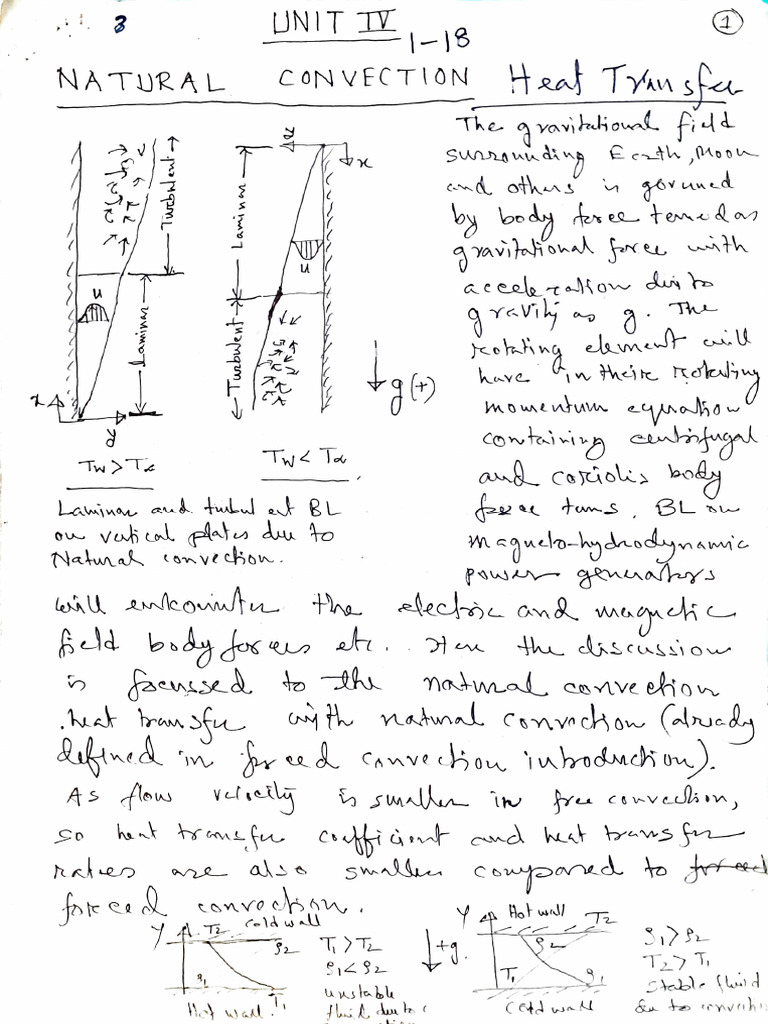 3
UNIT IV
1-18
1
NATURAL CONVECTION Heat Transfer
Turbulent
Laminar
u
x
y
Tw > Tα
y
x
Laminar
Turbulent
u
g (+)
Tw < Tα
Laminar and turbulent BL
on vertical plates due to
Natural convection.
The gravitational field
surrounding Earth, Moon
and others is goruned
by body force temed as
gravitational force with
acceleration due to
gravity as g. The
rotating element will
have in their rotating
momentum equation
containing centrifugal
and coriolis body
force terms. BL on
magneto-hydrodynamic
power generators
will enkounter the electric and magnetic
field body forces etc.. Here the discussion
is focussed to the natural convection
heat transfer with natural convection (already
defined in forced convection introduction).
As flow velocity is smaller in free convection,
so heat transfer coefficient and heat transfer
rates are also smaller compared to forced
forced convection.
Y T2 cold wall
ρ2
ρ1
T1
Hot wall.
T1 > T2
ρ1 < ρ2
unstable
fluid due to
+g.
Y Hot wall T2
ρ2
T1
ρ1
Cold wall
ρ1 > ρ2
T2 > T1
stable fluid
due to convection